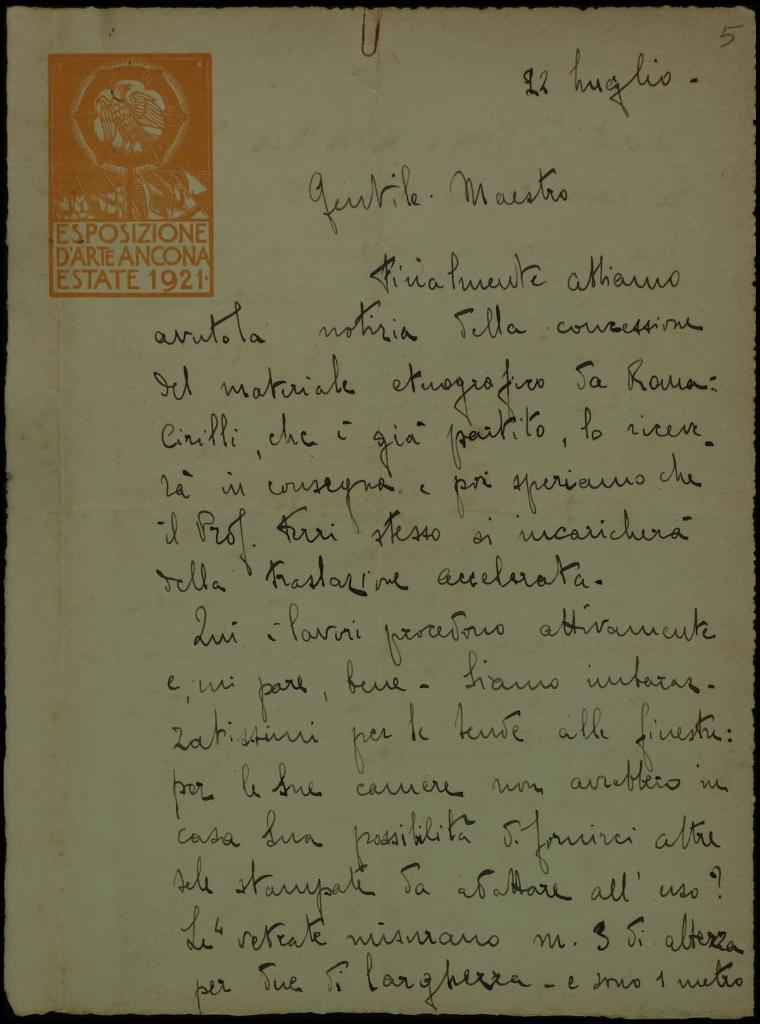 5
22 luglio -
ESPOSIZIONE
D'ARTE ANCONA
ESTATE 1921.
Gentile Maestro
Finalmente abbiamo
avuto la notizia della concessione
del materiale etnografico da Roma:
Cirilli, che è già partito, lo riceve-
rà in consegna e poi speriamo che
il Prof. Ferri stesso si incaricherà
della traslazione accelerata.
Qui i lavori procedono attivamente
e, mi pare, bene - Siamo imbaraz-
zatissimi per le tende alle finestre:
per le Sue camere non avrebbero in
casa Sua possibilità di fornirci altre
tele stampate da adattare all'uso?
Le vetrate misurano m. 3 di altezza
per due di larghezza - e sono 1 metro